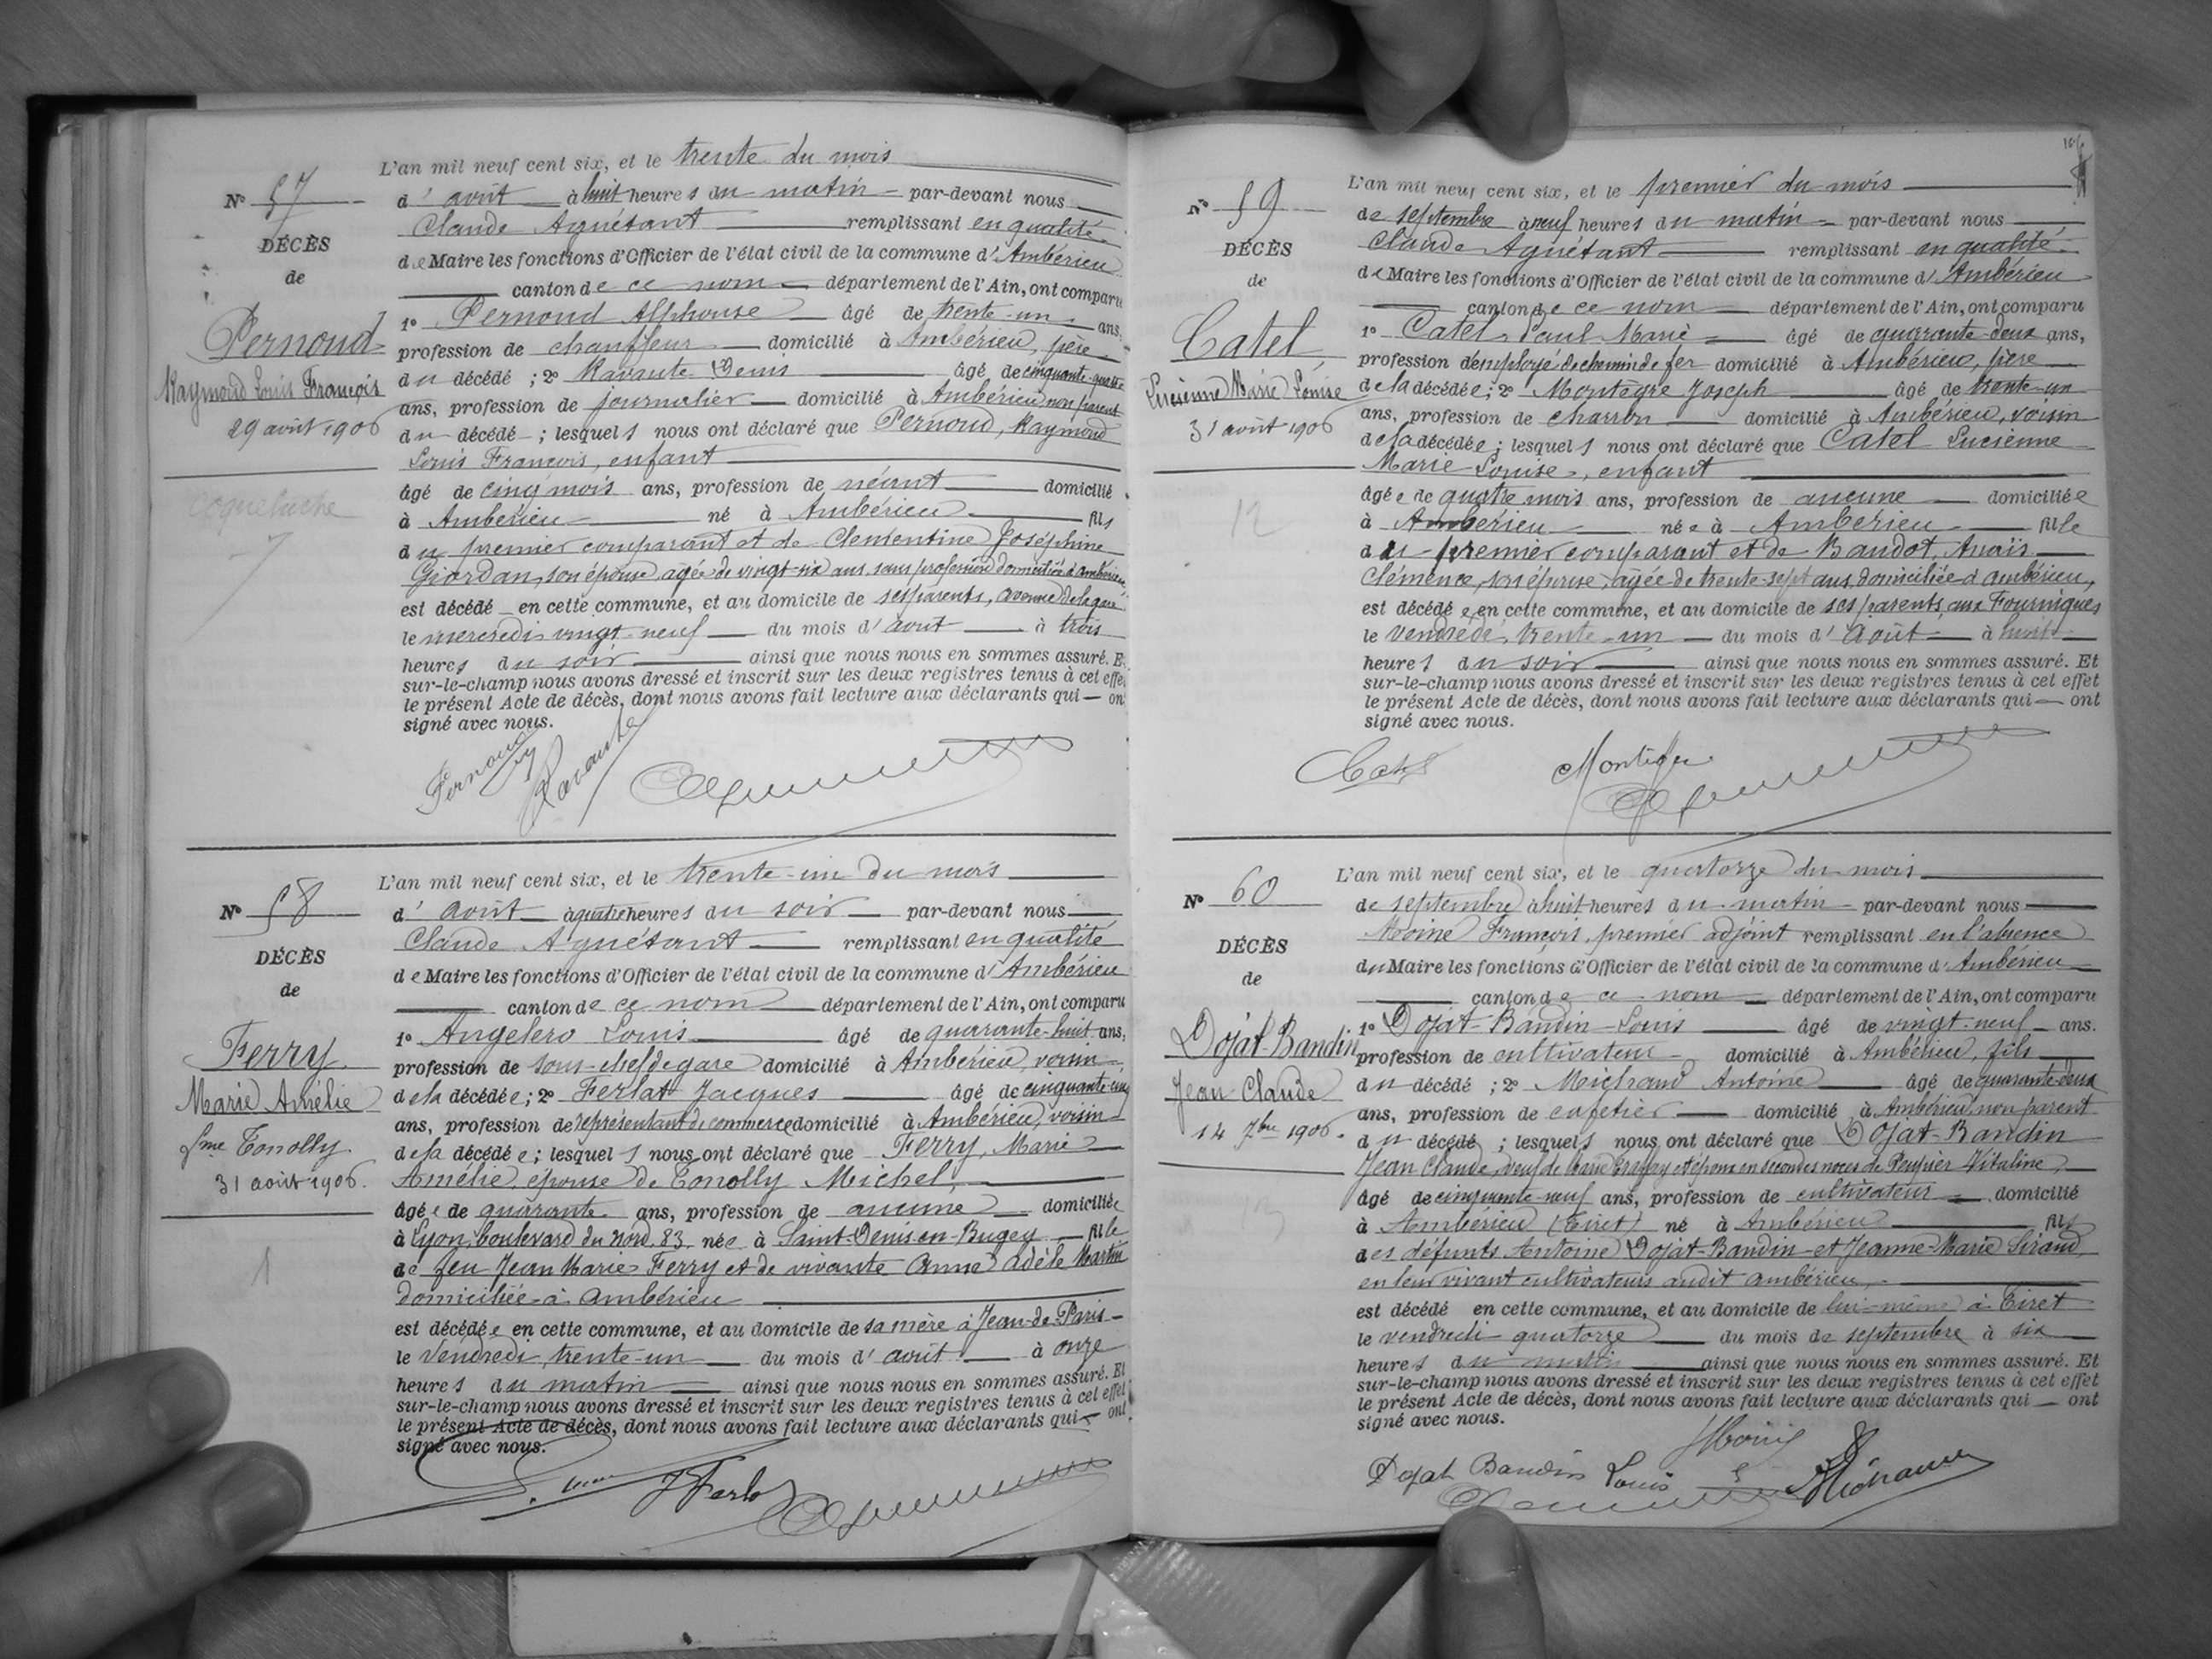 L'an mil neuf cent six, et le trente du mois
N° 57
d'août à huit heures du matin par-devant nous
Claude Aguétant remplissant en qualité
DÉCÈS
de Maire les fonctions d'Officier de l'état civil de la commune d'Ambérieu
de
canton de ce nom département de l'Ain, ont comparu
Pernoud
1° Pernoud Alphonse âgé de trente-un ans,
profession de chauffeur domicilié à Ambérieu, père
Raymond Louis François
du décédé ; 2° Ravante Denis âgé de cinquante-quatre
29 août 1906
ans, profession de journalier domicilié à Ambérieu non parent
du décédé ; lesquels nous ont déclaré que Pernoud, Raymond
Louis François, enfant
coqueluche
7
âgé de cinq mois ans, profession de néant domicilié
à Ambérieu né à Ambérieu fils
du premier comparant et de Clémentine Joséphine
Giordan, son épouse, agée de vingt-six ans, sans profession domiciliée à Ambérieu,
est décédé en cette commune, et au domicile de ses parents, avenue de la gare
le mercredi vingt-neuf du mois d'août à trois
heures du soir ainsi que nous nous en sommes assuré. Et
sur-le-champ nous avons dressé et inscrit sur les deux registres tenus à cet effet
le présent Acte de décès, dont nous avons fait lecture aux déclarants qui ont
signé avec nous.
Pernoud
Ravante
L'an mil neuf cent six, et le trente-un du mois
N° 58
d'août à quatre heures du soir par-devant nous
Claude Aguétant remplissant en qualité
DÉCÈS
de Maire les fonctions d'Officier de l'état civil de la commune d'Ambérieu
de
canton de ce nom département de l'Ain, ont comparu
Ferry
1° Angelero Louis âgé de quarante-huit ans,
profession de sous-chef de gare domicilié à Ambérieu, voisin
Marie Amélie
de la décédée ; 2° Ferlat Jacques âgé de cinquante-cinq
ans, profession de représentant de commerce domicilié à Ambérieu, voisin
fme Conolly
de la décédée ; lesquels nous ont déclaré que Ferry, Marie
31 août 1906.
Amélie, épouse de Conolly Michel,
âgée de quarante ans, profession de aucune domiciliée
à Lyon, boulevard du Nord, 83, née à Saint-Denis en-Bugey fille
1
de feu Jean Marie Ferry et de vivante Anne Adèle Martin
domiciliée à Ambérieu
est décédée en cette commune, et au domicile de sa mère à Jean-de-Paris
le Vendredi trente-un du mois d'août à onze
heures du matin ainsi que nous nous en sommes assuré. Et
sur-le-champ nous avons dressé et inscrit sur les deux registres tenus à cet effet
le présent Acte de décès, dont nous avons fait lecture aux déclarants qui ont
signé avec nous.
J Ferlat
L'an mil neuf cent six, et le premier du mois
N° 59
de septembre à neuf heures du matin par-devant nous
Claude Aguétant remplissant en qualité
DÉCÈS
de Maire les fonctions d'Officier de l'état civil de la commune d'Ambérieu
de
canton de ce nom département de l'Ain, ont comparu
Catel
1° Catel Paul Marie âgé de quarante-deux ans,
profession d'employé de chemin de fer domicilié à Ambérieu, père
Lucienne Marie Louise
de la décédée ; 2° Montègre Joseph âgé de trente-un
31 août 1906
ans, profession de charron domicilié à Ambérieu, voisin
de la décédée ; lesquels nous ont déclaré que Catel Lucienne
Marie Louise, enfant
âgée de quatre mois ans, profession de aucune domiciliée
12
à Ambérieu née à Ambérieu fille
du premier comparant et de Baudot, Anaïs
Clémence, son épouse, agée de trente-sept ans, domiciliée à Ambérieu,
est décédée en cette commune, et au domicile de ses parents, aux Fourniques
le Vendredi trente-un du mois d'Août à huit
heures du soir ainsi que nous nous en sommes assuré. Et
sur-le-champ nous avons dressé et inscrit sur les deux registres tenus à cet effet
le présent Acte de décès, dont nous avons fait lecture aux déclarants qui ont
signé avec nous.
Catel
Montègre
L'an mil neuf cent six, et le quatorze du mois
N° 60
de septembre à huit heures du matin par-devant nous
Moine François, premier adjoint remplissant en l'absence
DÉCÈS
du Maire les fonctions d'Officier de l'état civil de la commune d'Ambérieu
de
canton de ce nom département de l'Ain, ont comparu
Dojat-Bandin
1° Dojat-Bandin Louis âgé de vingt-neuf ans,
profession de cultivateur domicilié à Ambérieu, fils
Jean Claude
du décédé ; 2° Michaud Antoine âgé de quarante-deux
ans, profession de cafetier domicilié à Ambérieu non parent
14 7bre 1906.
du décédé ; lesquels nous ont déclaré que Dojat-Bandin
Jean Claude, veuf de Marie et époux en secondes noces de Vitaline,
âgé de cinquante-neuf ans, profession de cultivateur domicilié
à Ambérieu (Tiret) né à Ambérieu fils
13
des défunts Antoine Dojat-Bandin et Jeanne-Marie Sirand,
en leur vivant cultivateurs audit Ambérieu,
est décédé en cette commune, et au domicile de lui-même à Tiret
le vendredi quatorze du mois de septembre à six
heures du matin ainsi que nous nous en sommes assuré. Et
sur-le-champ nous avons dressé et inscrit sur les deux registres tenus à cet effet
le présent Acte de décès, dont nous avons fait lecture aux déclarants qui ont
signé avec nous.
Moine
Dojat Bandin Louis
Michaud